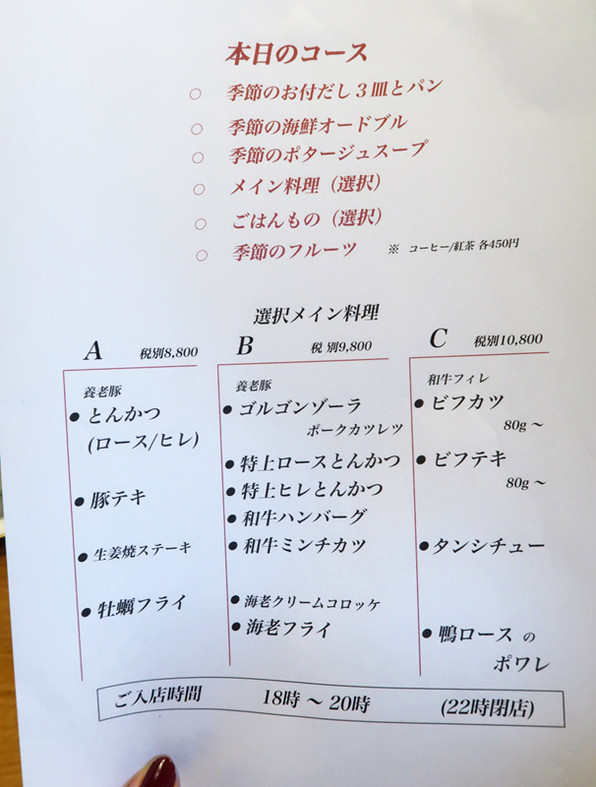 本日のコース
○ 季節のお付だし3皿とパン
○ 季節の海鮮オードブル
○ 季節のポタージュスープ
○ メイン料理（選択）
○ ごはんもの（選択）
○ 季節のフルーツ ※ コーヒー/紅茶 各450円
選択メイン料理
A 税別8,800
養老豚
●とんかつ
(ロース/ヒレ)
●豚テキ
●生姜焼ステーキ
●牡蠣フライ
B 税別9,800
養老豚
●ゴルゴンゾーラ
ポークカツレツ
●特上ロースとんかつ
●特上ヒレとんかつ
●和牛ハンバーグ
●和牛ミンチカツ
●海老クリームコロッケ
●海老フライ
C 税別10,800
和牛フィレ
●ビフカツ
80g～
●ビフテキ
80g～
●タンシチュー
●鴨ロース の
ポワレ
ご入店時間 18時～20時 (22時閉店)